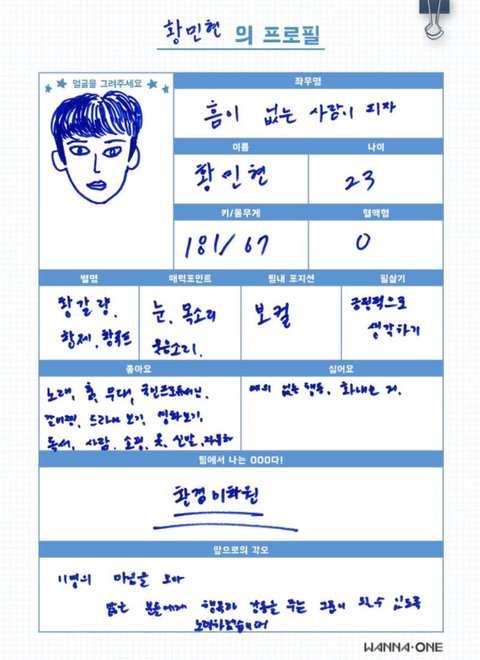 황민현 의 프로필
얼굴을 그려주세요
좌우명
흠이 없는 사람이 되자
이름
나이
황민현
23
키/몸무게
혈액형
181/67
O
별명
매력포인트
팀내 포지션
필살기
황갈량,
황제, 황루프
눈, 목소리
웃음소리,
보컬
긍정적으로
생각하기
좋아요
싫어요
노래, 춤, 무대, 국민프로듀서님,
드라마 보기, 영화보기,
독서, 사람, 쇼핑, 옷, 신발,
예의 없는 행동, 화내는 거.
팀에서 나는 OOO다!
환경미화원
앞으로의 각오
11명의 마음을 모아
많은 분들에게 행복과 감동을 주는 그룹이 될 수 있도록
노력하겠습니다
WANNA·ONE